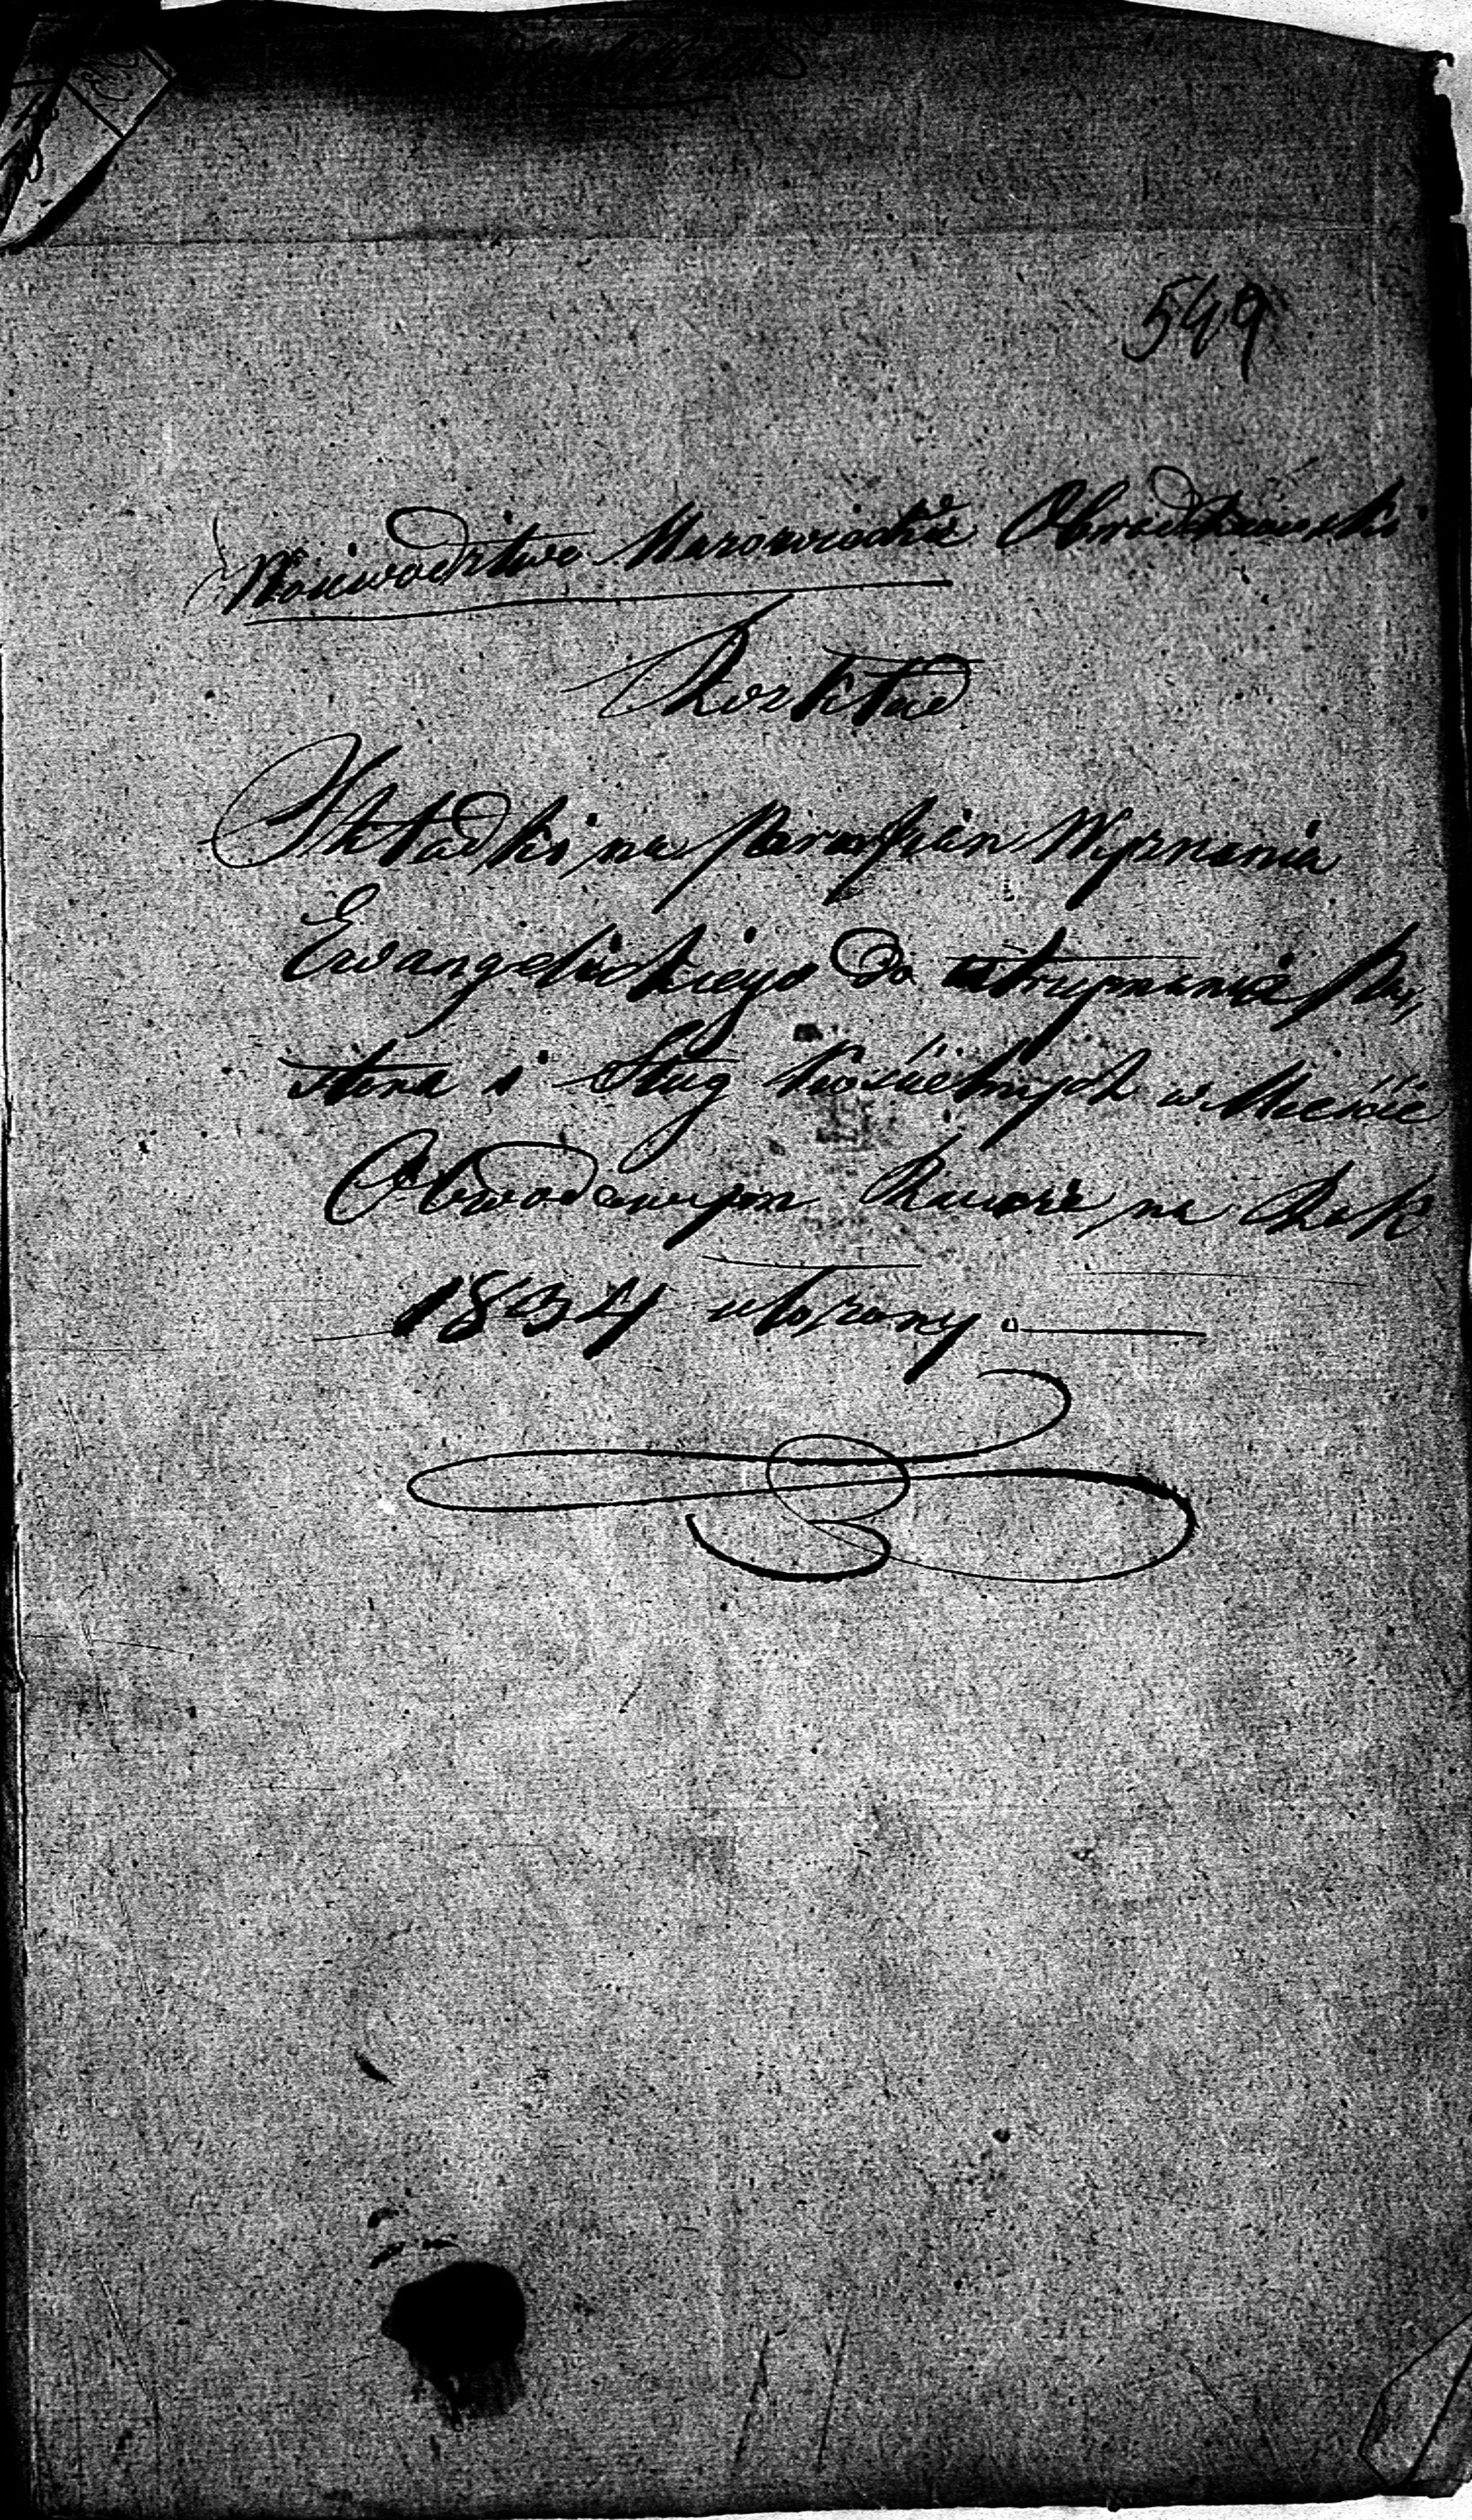 549
Woiewodztwo Mazowieckie Obwod Rawski
Rozkład
Składki na Parafian Wyznania
Ewangelickiego do utrzymania Pa,
stora i Sług Kościelnych w Mieście
Obwodowym Rawie na Rok
1834 ułożony.